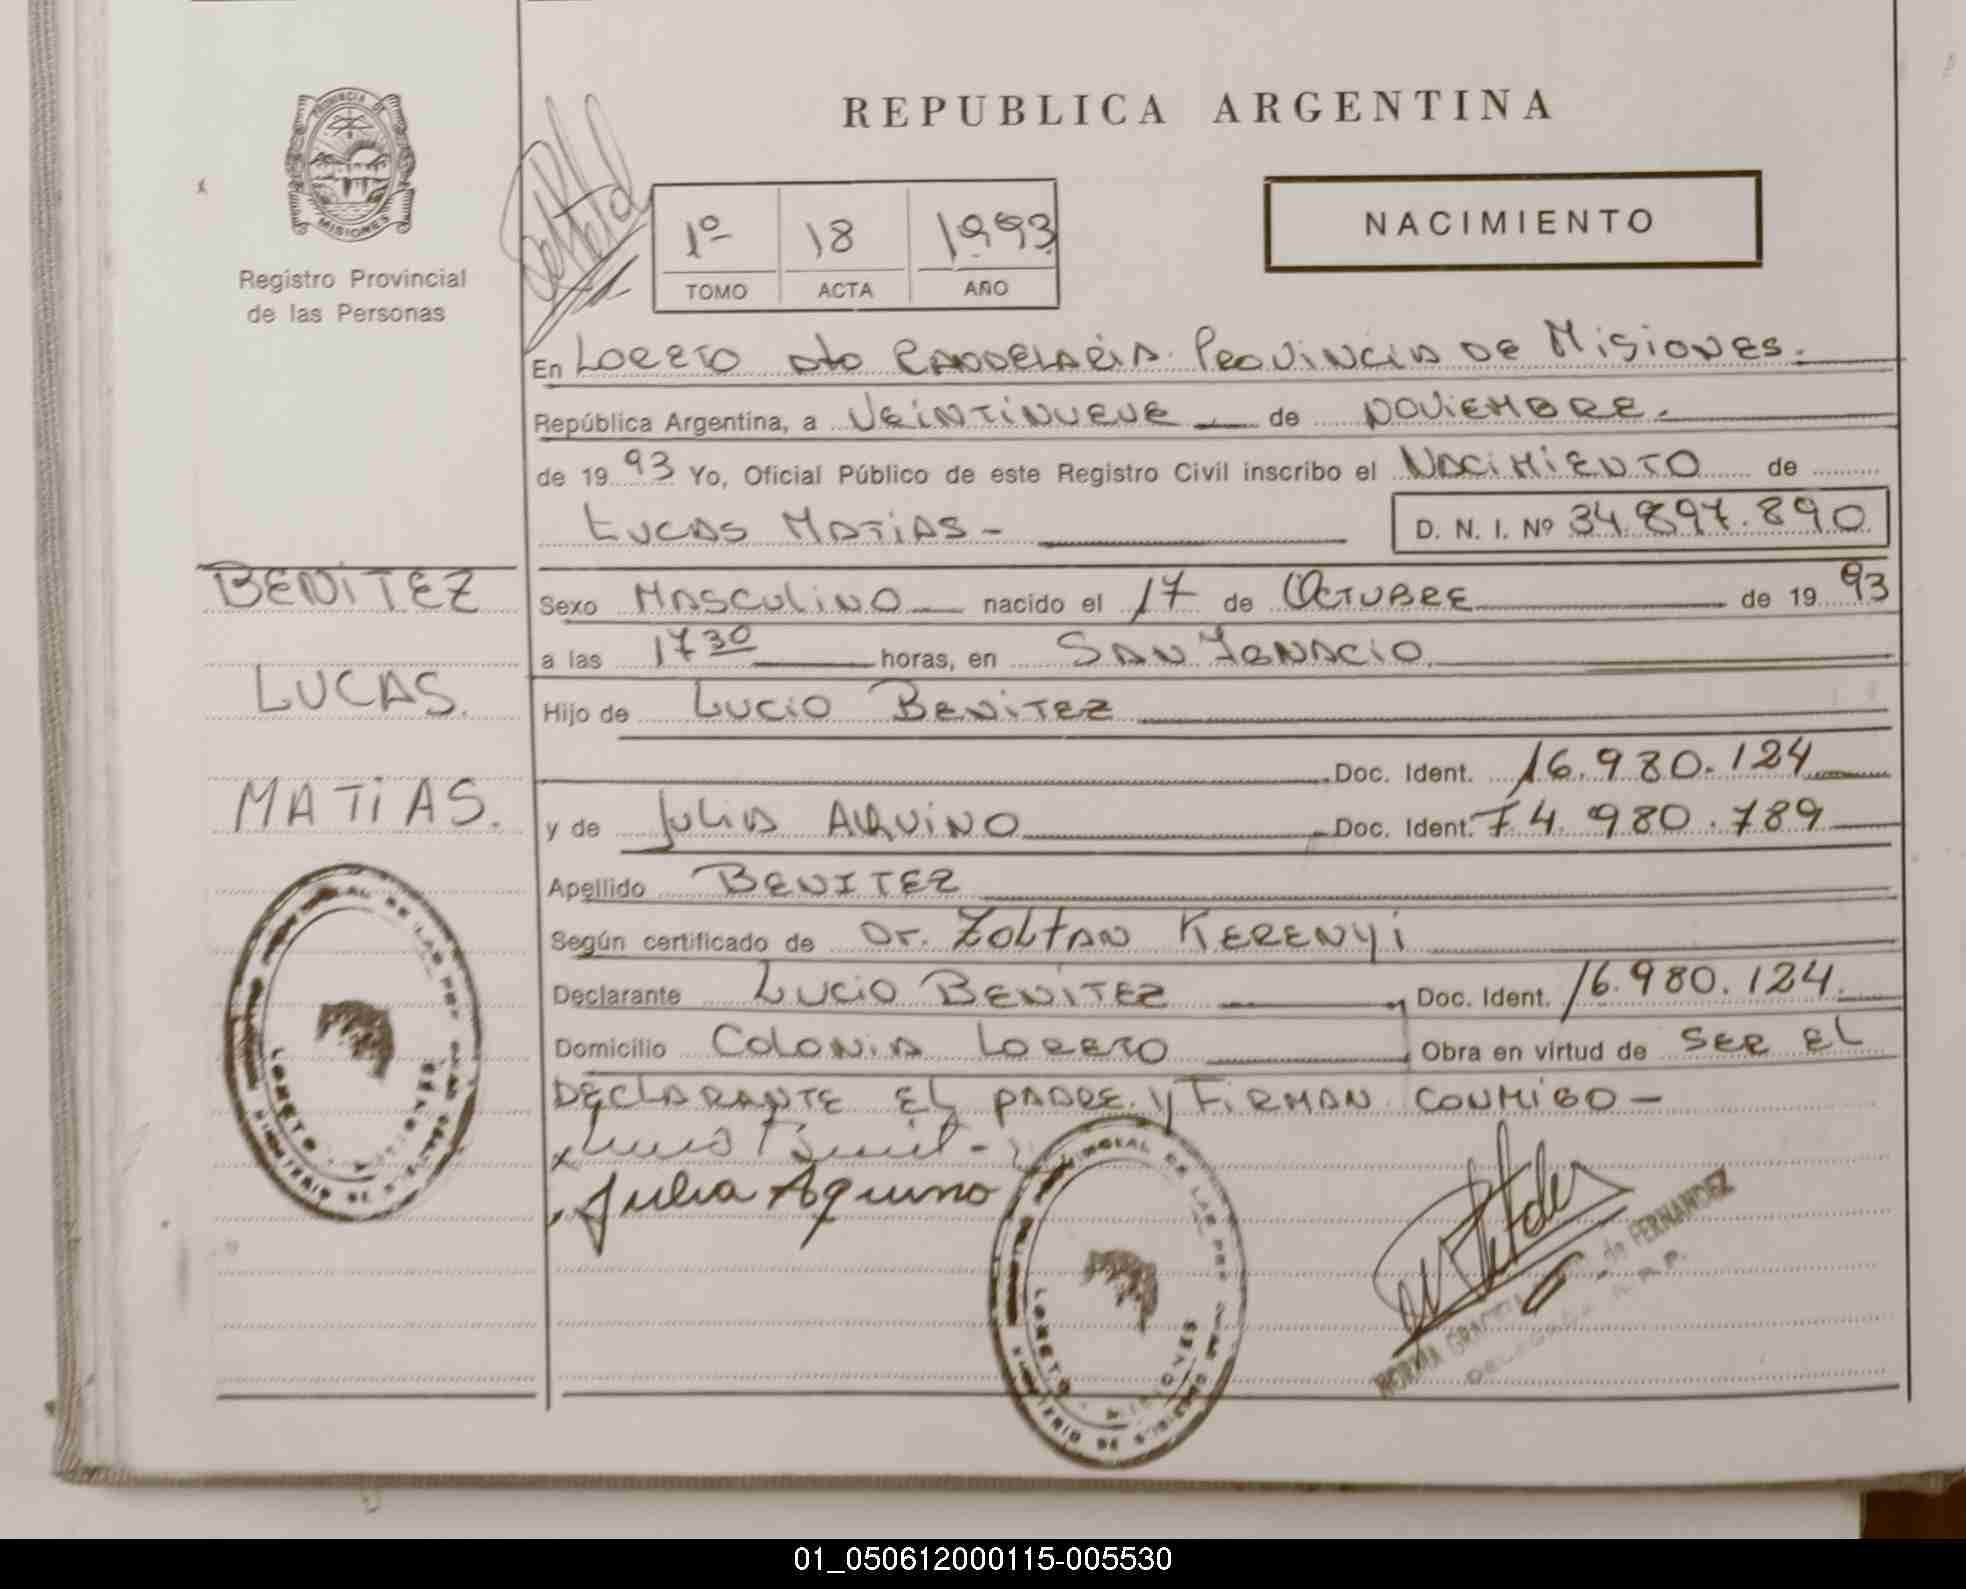 PROVINCIA DE
MISIONES
Registro Provincial
de las Personas
REPUBLICA ARGENTINA
NACIMIENTO
1º 18 1993
TOMO ACTA AÑO
En LORETO Dto CANDELARIA. PROVINCIA DE MISIONES.
República Argentina, a VEINTINUEVE de NOVIEMBRE.
de 1993 Yo, Oficial Público de este Registro Civil inscribo el NACIMIENTO de
LUCAS MATIAS - D. N. I. Nº 34.897.890
BENITEZ
LUCAS.
MATIAS.
Sexo MASCULINO nacido el 17 de OCTUBRE de 1993
a las 17 30 horas, en SAN IGNACIO
Hijo de LUCIO BENITEZ
Doc. Ident. 16.980.124
y de JULIA AQUINO Doc. Ident. 74.980.789
Apellido BENITEZ
Según certificado de Dr. ZOLTAN KERENYI
Declarante LUCIO BENITEZ Doc. Ident. 16.980.124.
Domicilio COLONIA LORETO Obra en virtud de SER EL
DECLARANTE EL PADRE Y FIRMAN CONMIGO -
Julia Aquino
LORETO
LORETO MISIONES
NORMA de FERNANDEZ
01_050612000115-005530